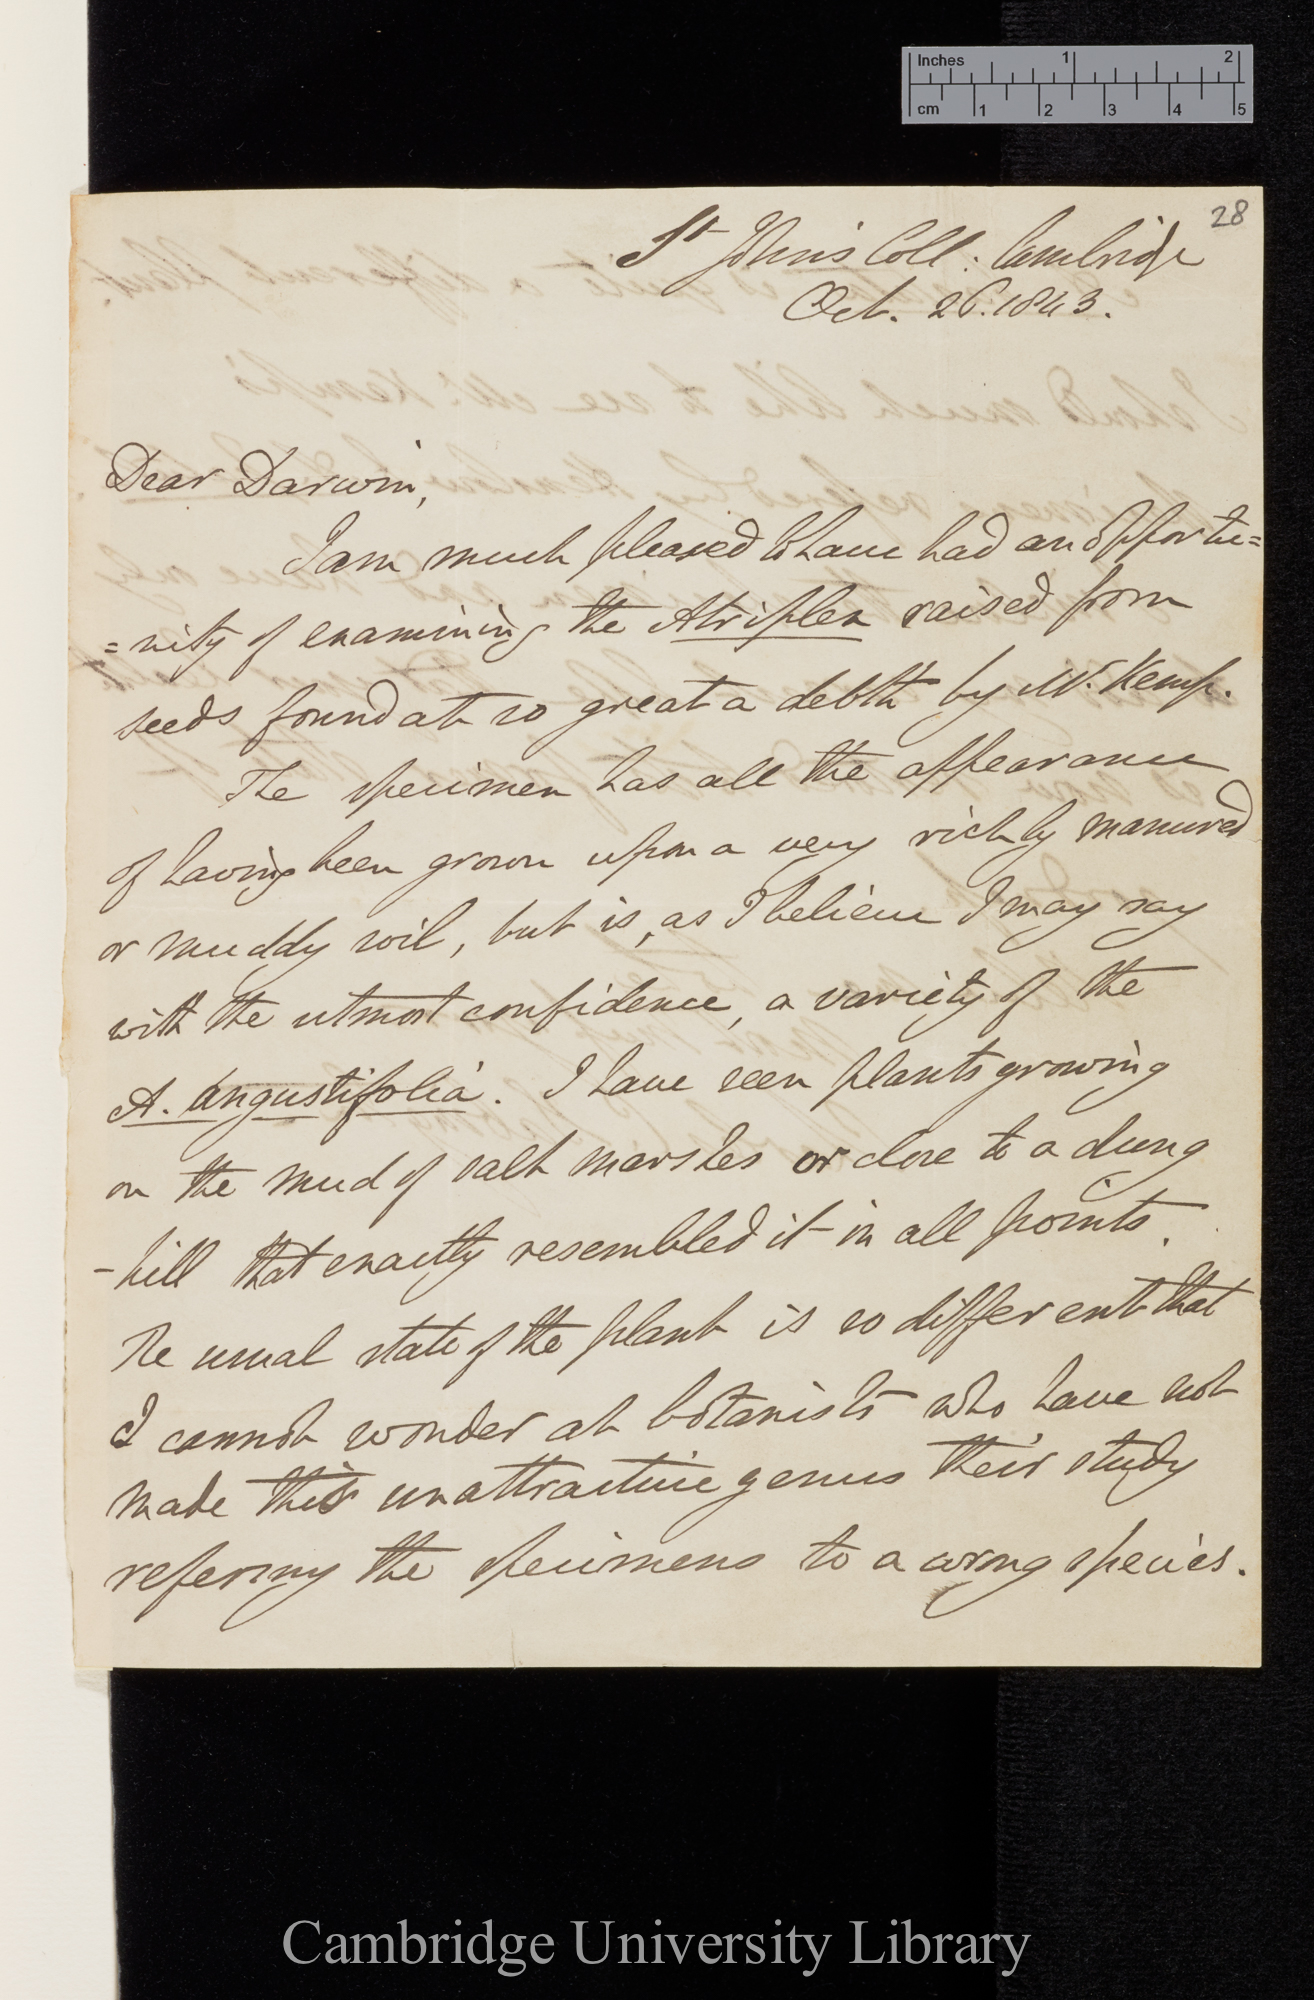 Inches 1 2
cm 1 2 3 4 5
28
St Johns Coll: Cambridge
Oct. 26. 1843.
Dear Darwin,
I am much pleased to have had an opportu=
=nity of examining the Atriplex raised from
seeds found at so great a debth by Mr. Kemp.
The specimen has all the appearance
of having been grown upon a very richly manured
or muddy soil, but is, as I believe I may say
with the utmost confidence, a variety of the
A. angustifolia. I have seen plants growing
on the mud of salt marshes or close to a dung
-hill that exactly resembled it in all points.
The usual state of the plant is so different that
I cannot wonder at botanists who have not
made this unattractive genus their study
refering the specimens to a wrong species.
Cambridge University Library